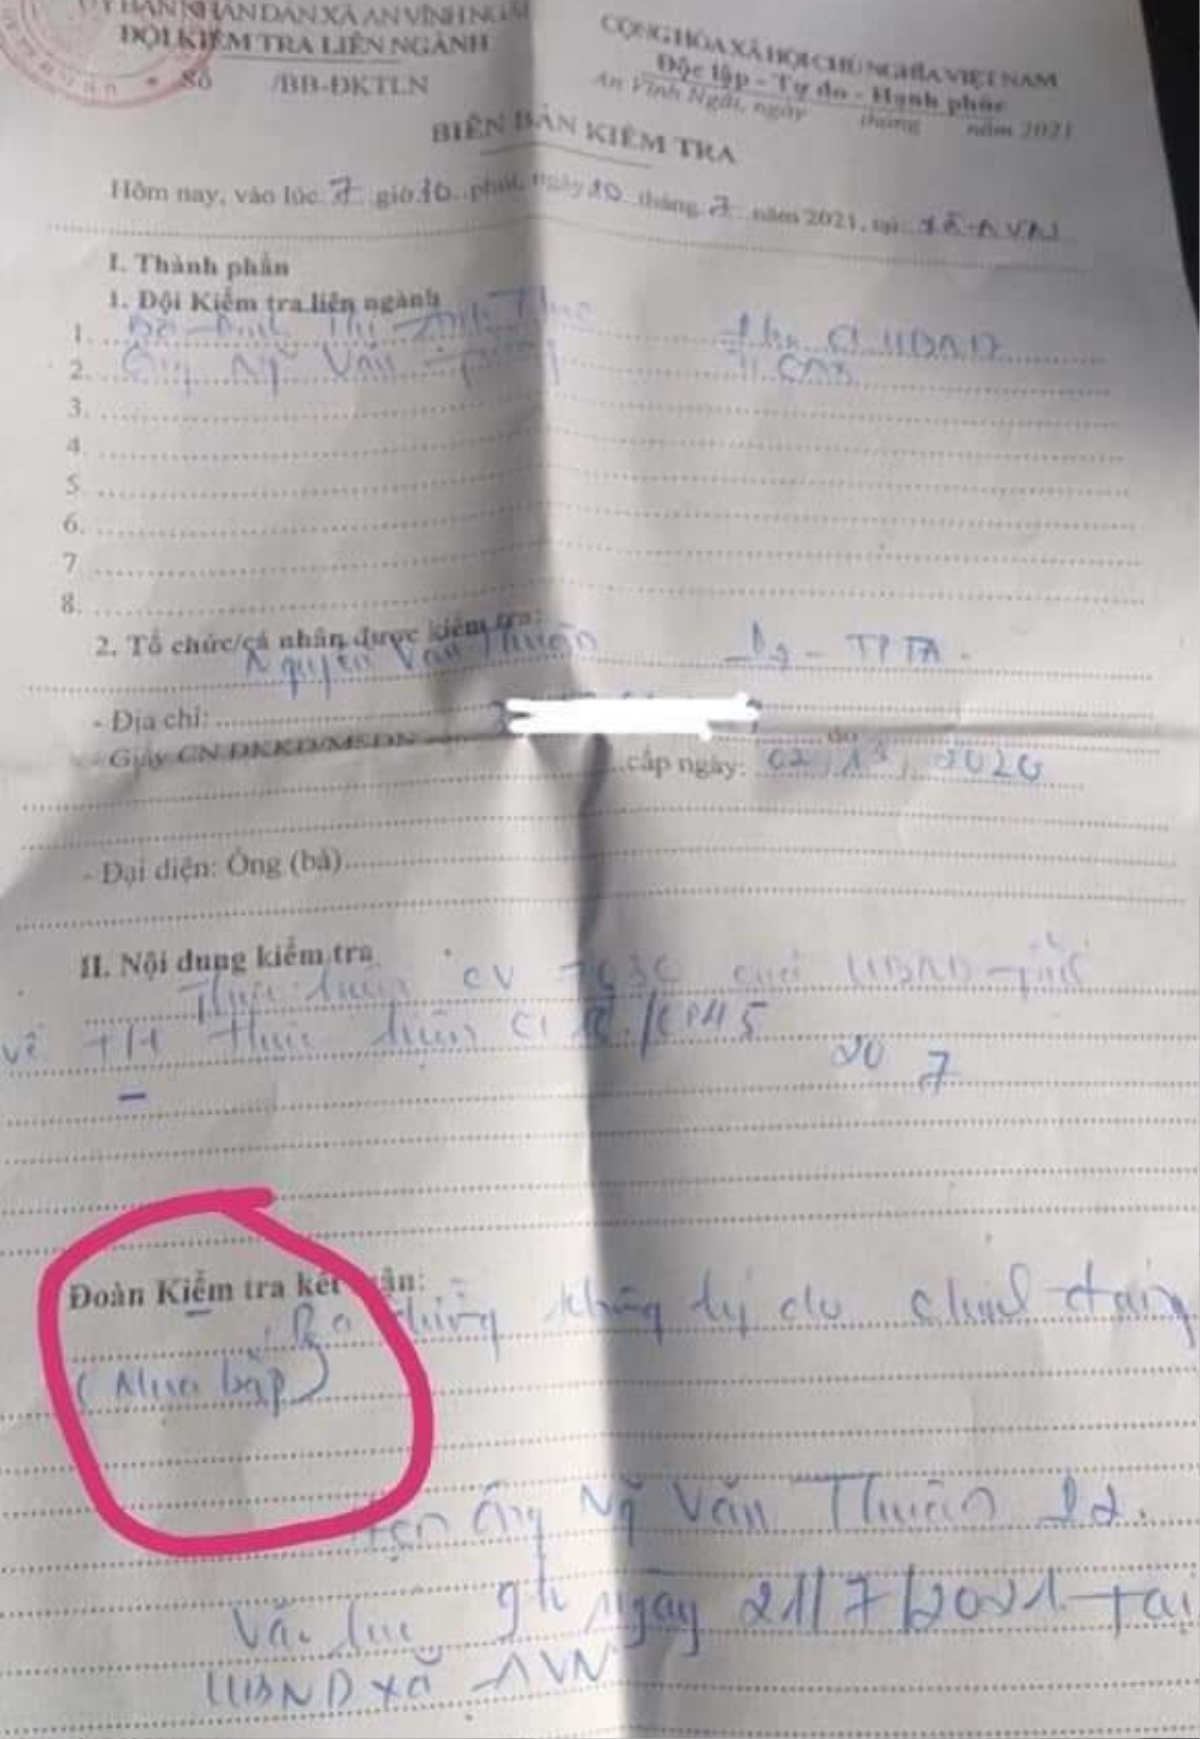 ỦY BAN NHÂN DÂN XÃ AN VĨNH NGÃI
ĐỘI KIỂM TRA LIÊN NGÀNH
Số /BB-ĐKTLN
CỘNG HÒA XÃ HỘI CHỦ NGHĨA VIỆT NAM
Độc lập - Tự do - Hạnh phúc
An Vĩnh Ngãi, ngày tháng năm 2021
BIÊN BẢN KIỂM TRA
Hôm nay, vào lúc 7 giờ 10 phút, ngày 20 tháng 7 năm 2021, tại: xã AVN
I. Thành phần
1. Đội Kiểm tra liên ngành
1. Bà Thị UBND
2. Ông Ng Văn
3.
4.
5.
6.
7
8.
2. Tổ chức/cá nhân được kiểm tra:
Nguyễn Văn Thuân - TPTA.
- Địa chỉ:
- Giấy CN ĐKKD/MSDN do
cấp ngày: 2020
- Đại diện: Ông (bà)
II. Nội dung kiểm tra
Thực hiện CV của UBND tỉnh
về thực hiện CT
20 7
Đoàn Kiểm tra kết luận:
Ra đường không lý do chính đáng
(Mua bắp)
Hẹn ông Ng Văn Thuân
Vào lúc 9h ngày 21/7/2021 tại
UBND xã AVN